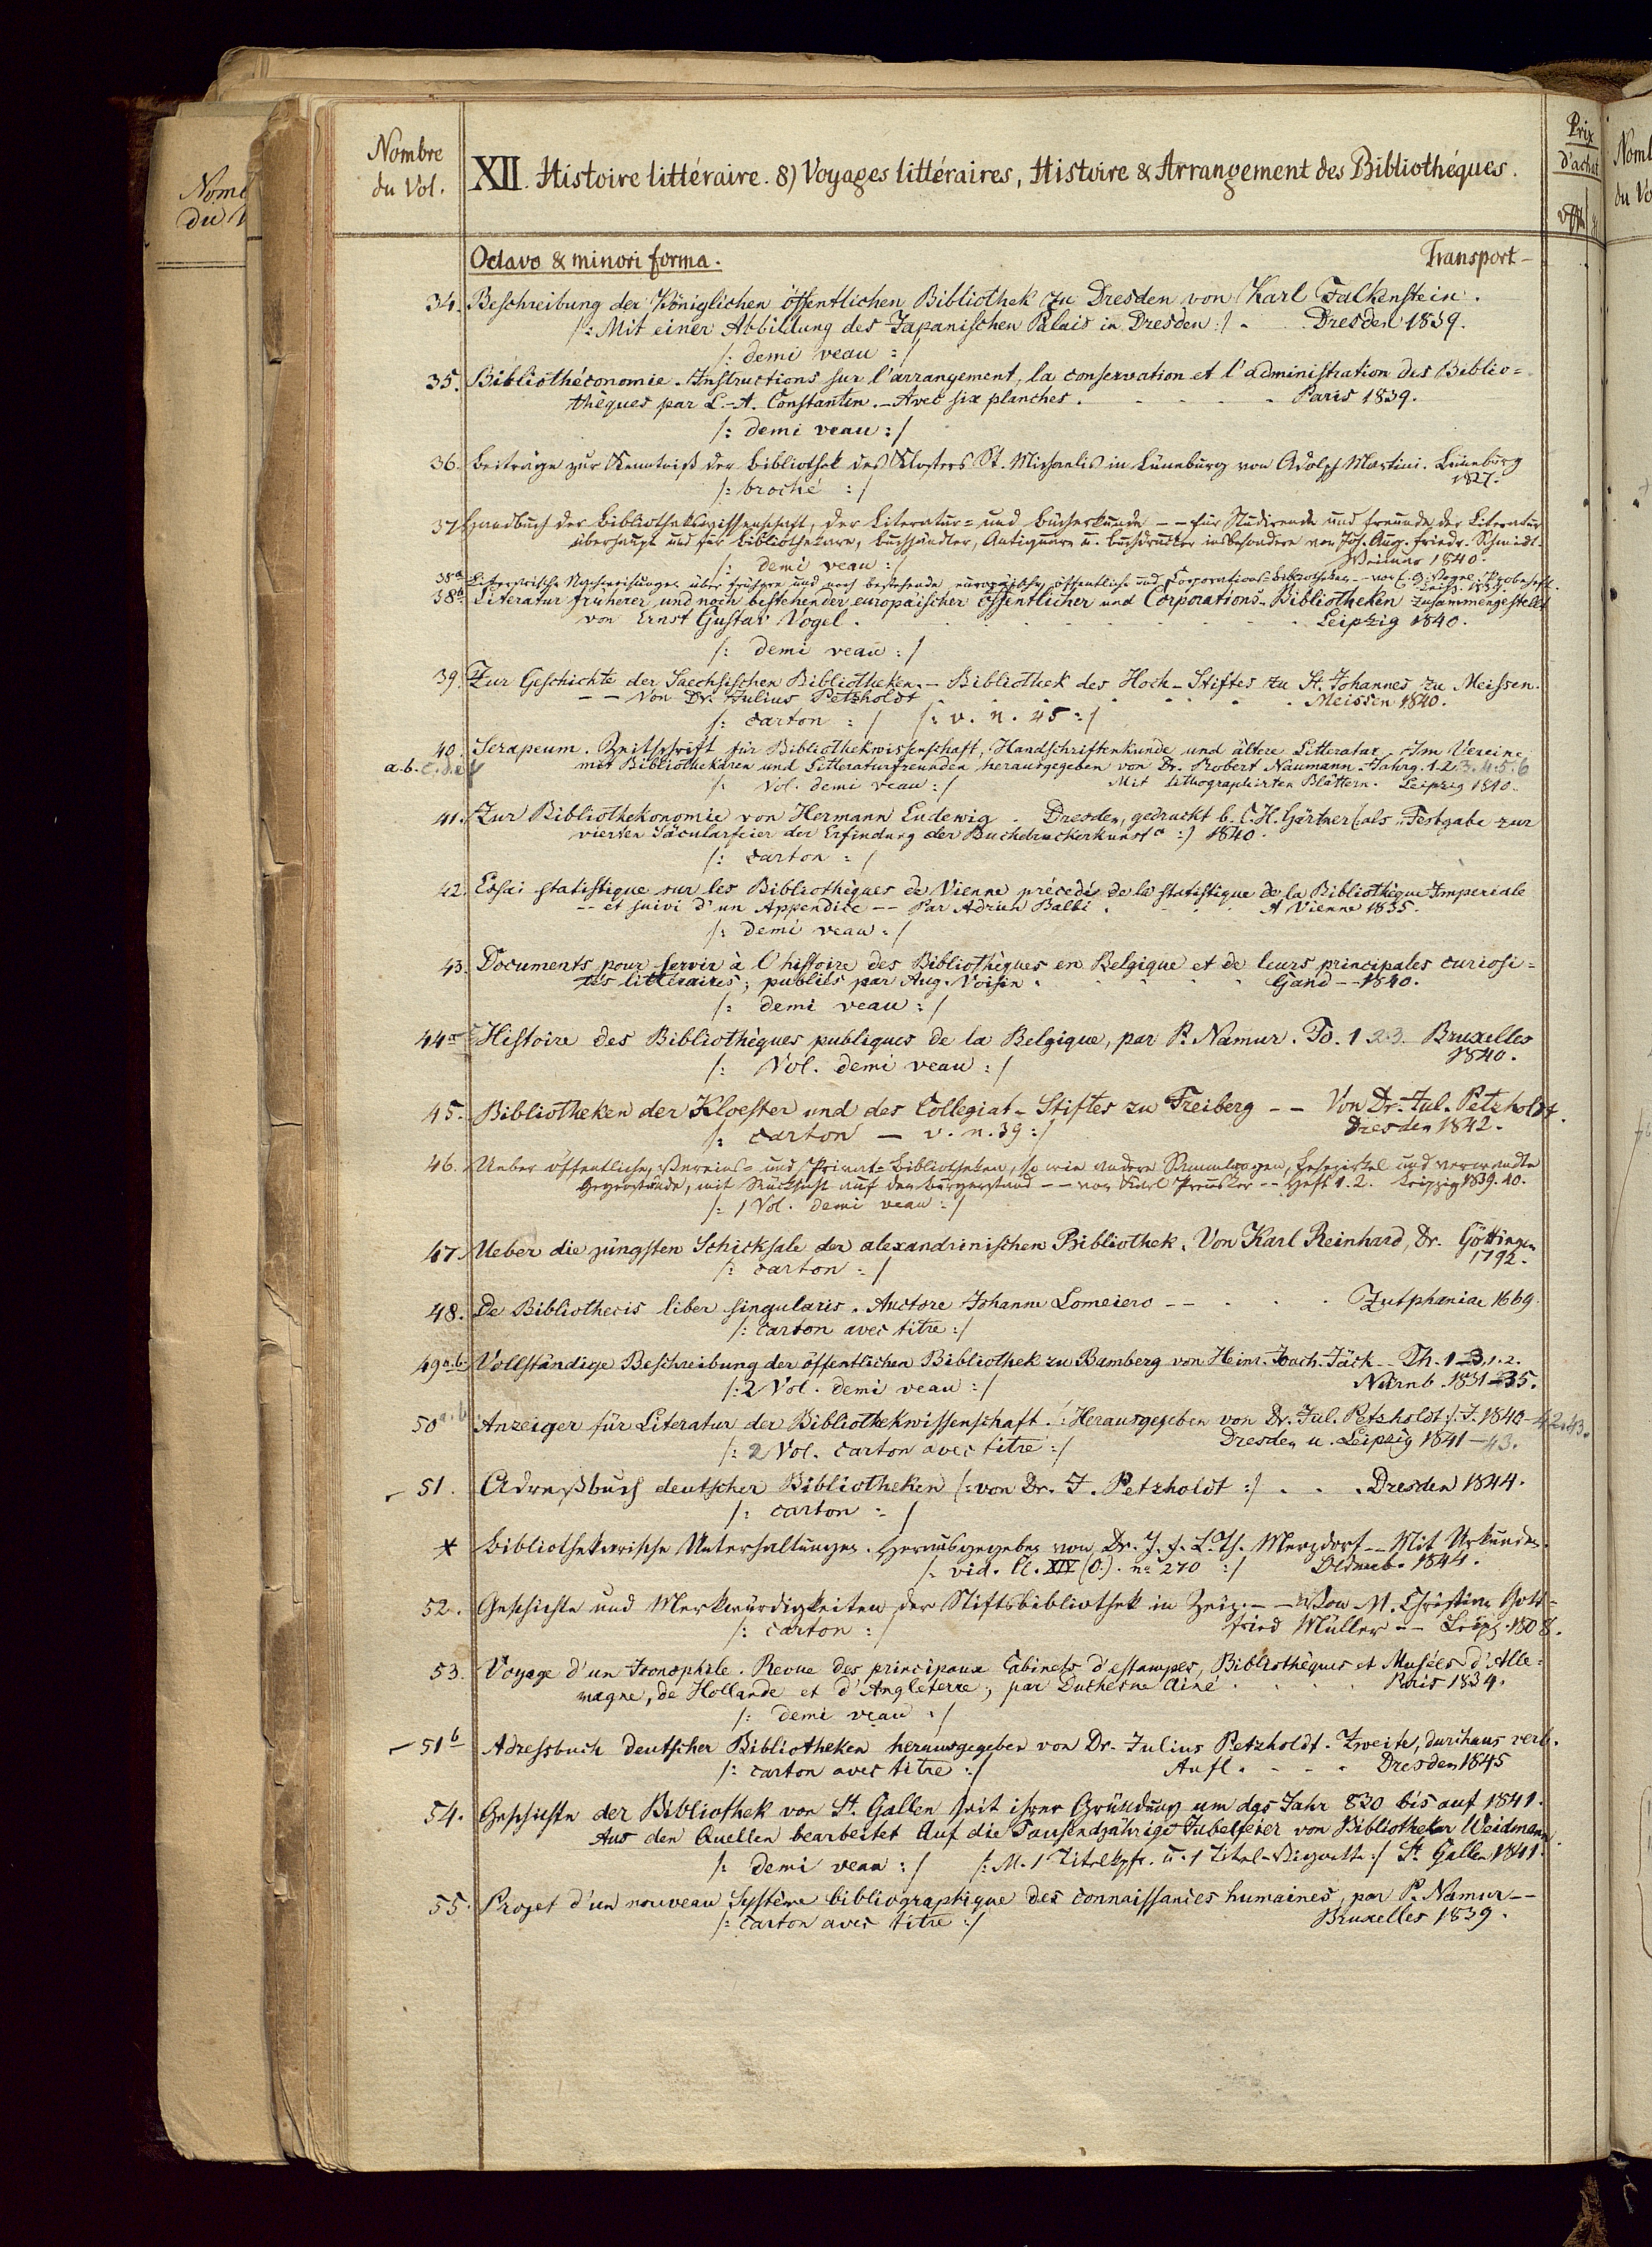 Nombre
du Vol.
XII. Histoire littéraire. 8) Voyages littéraires, Histoire & Arrangement des Bibliothéques.
Prix
d'achat
Octavo & minori forma. Transport -
34. Beschreibung der Königlichen öffentlichen Bibliothek zu Dresden von Karl Falkenstein.
/: Mit einer Abbildung des Japanischen Palais in Dresden :/ . Dresden 1839.
/: demi veau :/
35. Bibliothéconomie. Instructions sur l'arrangement, la conservation et l'administration des Biblio=
thèques par L.-A. Constantin. - Avec six planches. - - - - - Paris 1839.
/: demi veau :/
36. Beiträge zur Kenntniß der Bibliothek des Klosters St. Michaelis in Lüneburg von Adolph Martini. Lüneburg
1827.
/: broché :/
37. Handbuch der Bibliothekswissenschaft, der Literatur= und Bücherkunde -- für Studirende und Freunde der Literatur
überhaupt und für Bibliothekare, Buchhändler, Antiquare u. Buchdrucker insbesondere von Joh. Aug. Friedr. Schmidt.
/: demi veau :/ Weimar 1840.
38a Literarische Nachweisungen über frühere und noch bestehende europäische, öffentliche und Corporations=Bibliotheken -- von E. G. Vogel. Probeheft.
Leipz. 1839.
38b Literatur früherer und noch bestehender europäischer öffentlicher und Corporations-Bibliotheken zusammengestellt
von Ernst Gustav Vogel. . . . . . . . . Leipzig 1840.
/: demi veau :/
39. Zur Geschichte der Saechsischen Bibliotheken. - Bibliothek des Hoch-Stiftes zu St. Johannes zu Meissen.
-- Von Dr. Julius Petzholdt . . . . . . . Meissen 1840.
/: carton :/ /: v. n. 45 :/
40. Serapeum. Zeitschrift für Bibliothekwissenschaft, Handschriftenkunde und ältere Litteratur. Im Vereine
a. b. c. d. e. f mit Bibliothekaren und Litteraturfreunden herausgegeben von Dr. Robert Naumann. Jahrg. 1. 2. 3. 4. 5. 6
/: Vol. demi veau :/ Mit lithographirten Blättern. Leipzig 1840.
41. Zur Bibliothekonomie von Hermann Ludewig. Dresden, gedruckt b. C. H. Gärtner (als "Festgabe zur
vierten Säcularfeier der Erfindung der Buchdruckerkunst" :) 1840.
/: carton :/
42. Essai statistique sur les Bibliothèques de Vienne précedé de la statistique de la Bibliothèque Imperiale
-- et suivi d'un Appendice -- Par Adrien Balbi . . . . A Vienne 1835.
/: demi veau :/
43. Documents pour servir à l'histoire des Bibliothèques en Belgique et de leurs principales curiosi=
tés littéraires; publiés par Aug. Voisin . . . . . . Gand -- 1840.
/: demi veau :/
44a Histoire des Bibliothèques publiques de la Belgique, par P. Namur. To. 1 2. 3. Bruxelles
1840.
/: Vol. demi veau :/
45. Bibliotheken der Kloester und des Collegiat-Stiftes zu Freiberg -- Von Dr. Jul. Petzholdt.
/: carton - v. n. 39 :/ Dresden 1842.
46. Ueber öffentliche, Vereins= und Privat=Bibliotheken, so wie andere Sammlungen, Lesezirkel und verwandte
Gegenstände, mit Rücksicht auf den Bürgerstand -- von Karl Preusker -- Heft 1. 2. Leipzig 1839. 40.
/: 1 Vol. demi veau :/
47. Ueber die jüngsten Schicksale der alexandrinischen Bibliothek. Von Karl Reinhard, Dr. Göttingen
1792.
/: carton :/
48. De Bibliothecis liber singularis. Auctore Johanne Lomeiero -- . . . Zutphaniae 1669.
/: carton avec titre :/
49 a. b. Vollständige Beschreibung der öffentlichen Bibliothek zu Bamberg von Heinr. Joach. Jäck -- Th. 1-3, 1. 2.
/: 2 Vol. demi veau :/ Nürnb. 1831-35.
50 a. b Anzeiger für Literatur der Bibliothekwissenschaft. /: Herausgegeben von Dr. Jul. Petzholdt :/. J. 1840-42. 43.
/: 2 Vol. carton avec titre :/ Dresden u. Leipzig 1841-43.
51. Adreßbuch deutscher Bibliotheken /: von Dr. J. Petzholdt :/ . . . Dresden 1844.
/: carton :/
* Bibliothekarische Unterhaltungen. Herausgegeben von Dr. J. F. L. Th. Merzdorf -- Mit Urkunden.
/: vid. Cl. XIV (O.). no 270 :/ Oldenb. 1844.
52. Geschichte und Merkwürdigkeiten der Stiftsbibliothek in Zeiz -- Von M. Christian Gott=
/: carton :/ fried Müller -- Leipz. 1808.
53. Voyage d'un Iconophile. Revue des principaux Cabinets d'estampes, Bibliothèques et Musées d'Alle=
magne, de Hollande et d'Angleterre; par Duchesne Ainé . . . . Paris 1834.
/: demi veau :/
51b Adressbuch deutscher Bibliotheken herausgegeben von Dr. Julius Petzholdt. Zweite, durchaus verb.
/: carton avec titre :/ Aufl. - - - Dresden 1845
54. Geschichte der Bibliothek von St. Gallen seit ihrer Gründung um das Jahr 830 bis auf 1841.
Aus den Quellen bearbeitet Auf die Tausendjährige Jubelfeier von Bibliothekar Weidmann.
/: demi veau :/ /: M. 1 Titelkpfr. u. 1 Titel-Vignette :/ St. Gallen 1841.
55. Projet d'un nouveau Système bibliographique des connaissances humaines, par P. Namur --
/: carton avec titre :/ Bruxelles 1839.